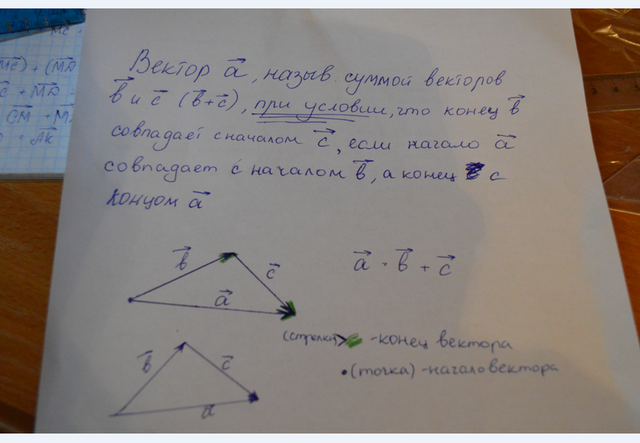 MC) + (MD
C + MD -
CM + M
+ AK
Вектор a⃗, назыв суммой векторов
b⃗ и c⃗ (b⃗+c⃗), при условии, что конец b⃗
совпадает с началом c⃗, если начало a⃗
совпадает с началом b⃗, а конец с
концом a⃗
b⃗
c⃗
a⃗
a⃗ = b⃗ + c⃗
(стрелка) > - конец вектора
• (точка) - начало вектора
b⃗
c⃗
a